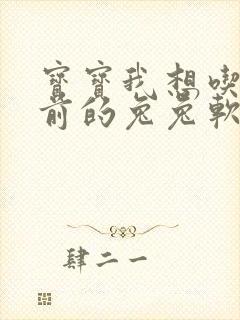 寶寶我想喫
前的兔兔軟
肆二一